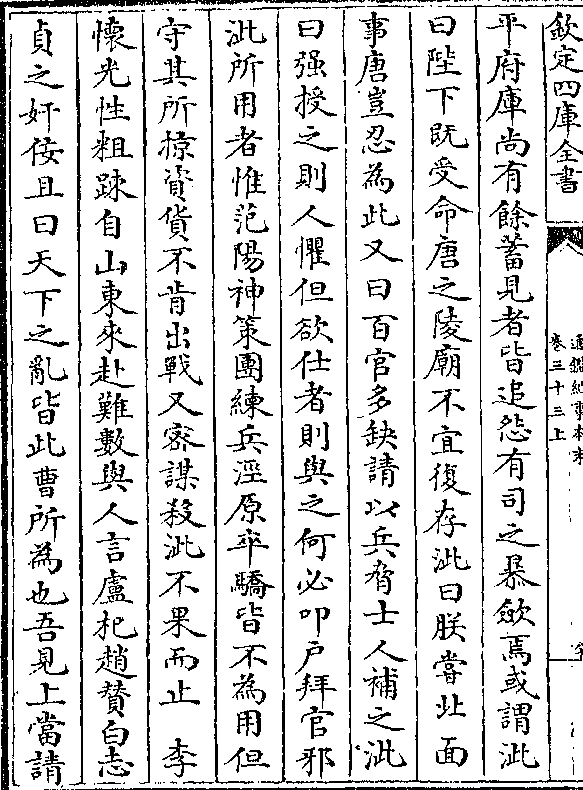 欽定四庫全書
通鑑紀事本末
卷三十三上
平府庫尚有餘蓄見者皆追怨有司之暴斂焉或謂泚
曰陛下既受命唐之陵廟不宜復存泚曰朕嘗北面
事唐豈忍為此又曰百官多缺請以兵脅士人補之泚
曰强授之則人懼但欲仕者則與之何必叩户拜官邪
泚所用者惟范陽神策團練兵涇原卒驕皆不為用但
守其所掠資貨不肯出戰又密謀殺泚不果而止　李
懷光性粗踈自山東來赴難數與人言盧杞趙贊白志
貞之奸佞且曰天下之亂皆此曹所為也吾見上當請